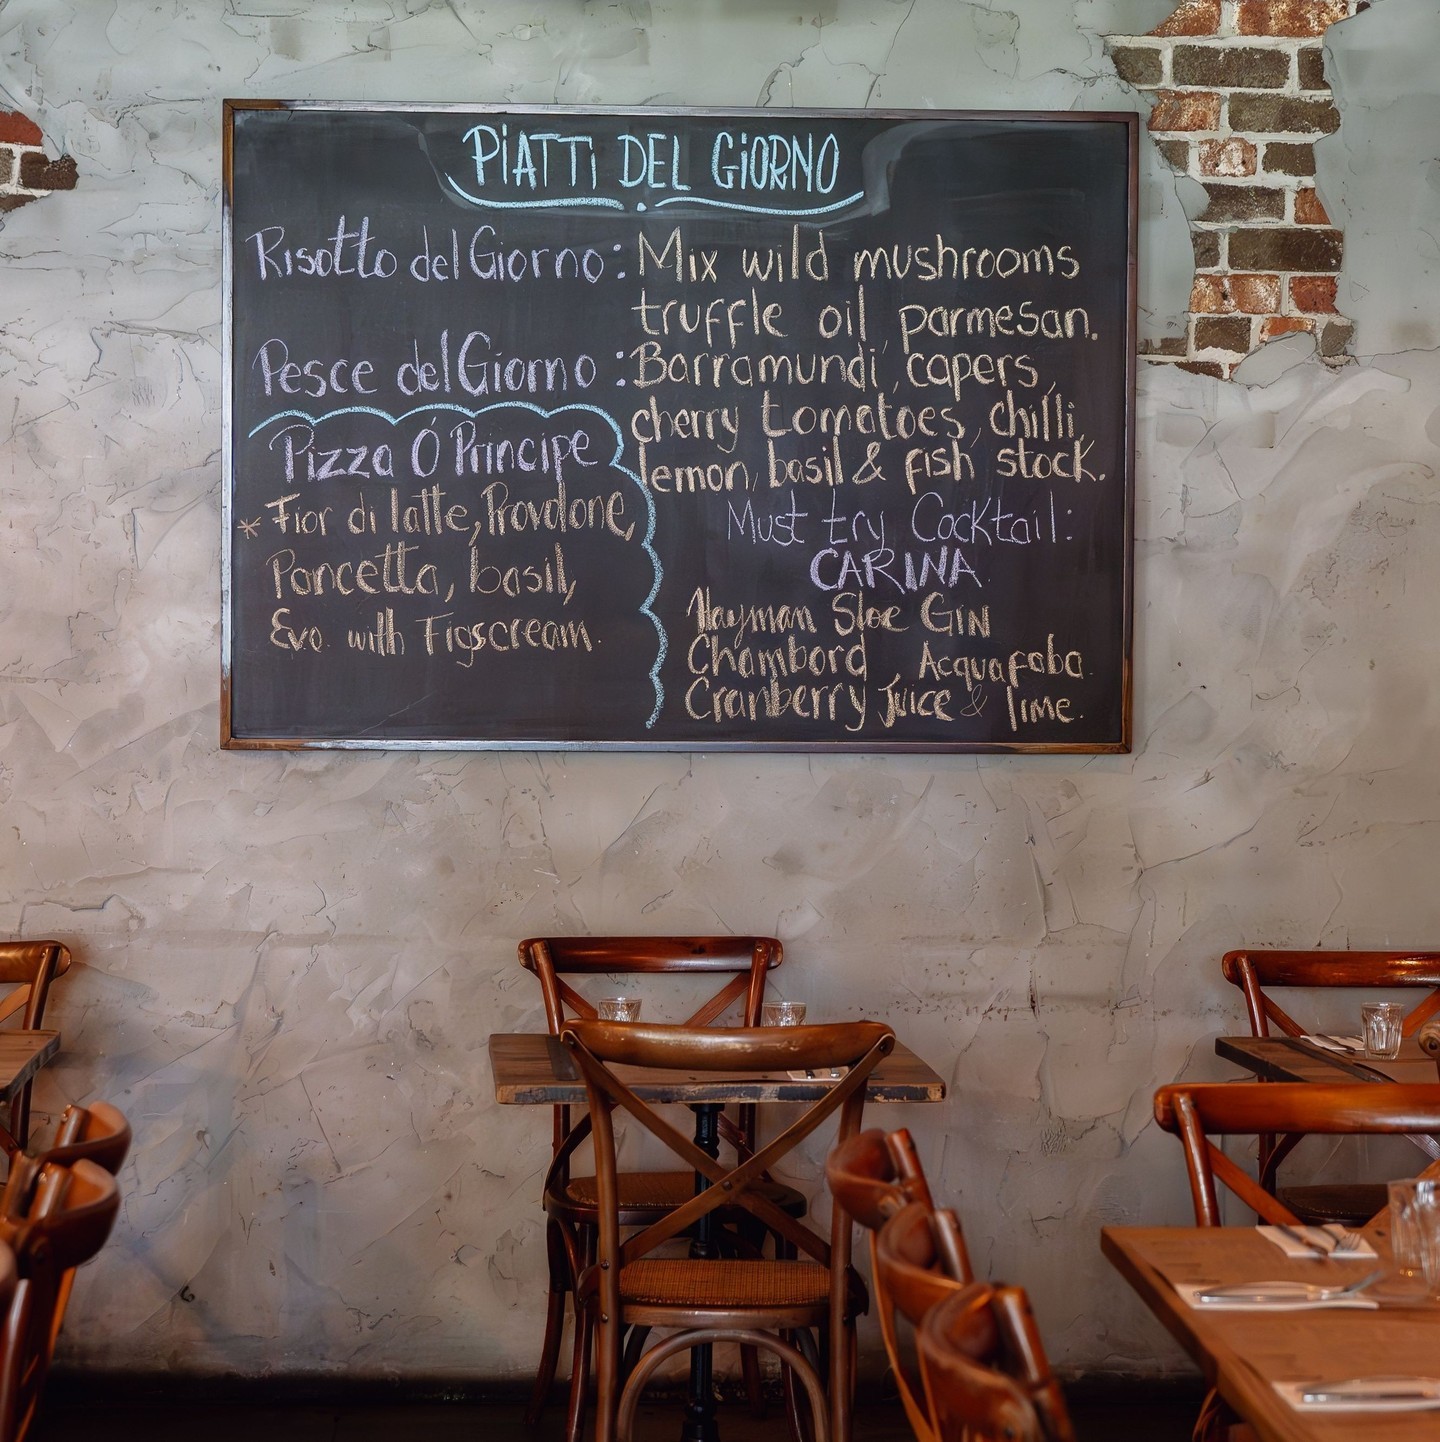 PiATTi DEL GiORNO
Risotto del Giorno : Mix wild mushrooms
truffle oil, parmesan.
Pesce del Giorno : Barramundi, capers,
cherry tomatoes, chilli,
lemon, basil & fish stock.
Pizza Ó Principe
* Fior di latte, Provolone,
Pancetta, basil,
Evo. with Figscream.
Must try Cocktail:
CARINA
Hayman Sloe GiN
Chambord Acquafaba
Cranberry Juice & lime.